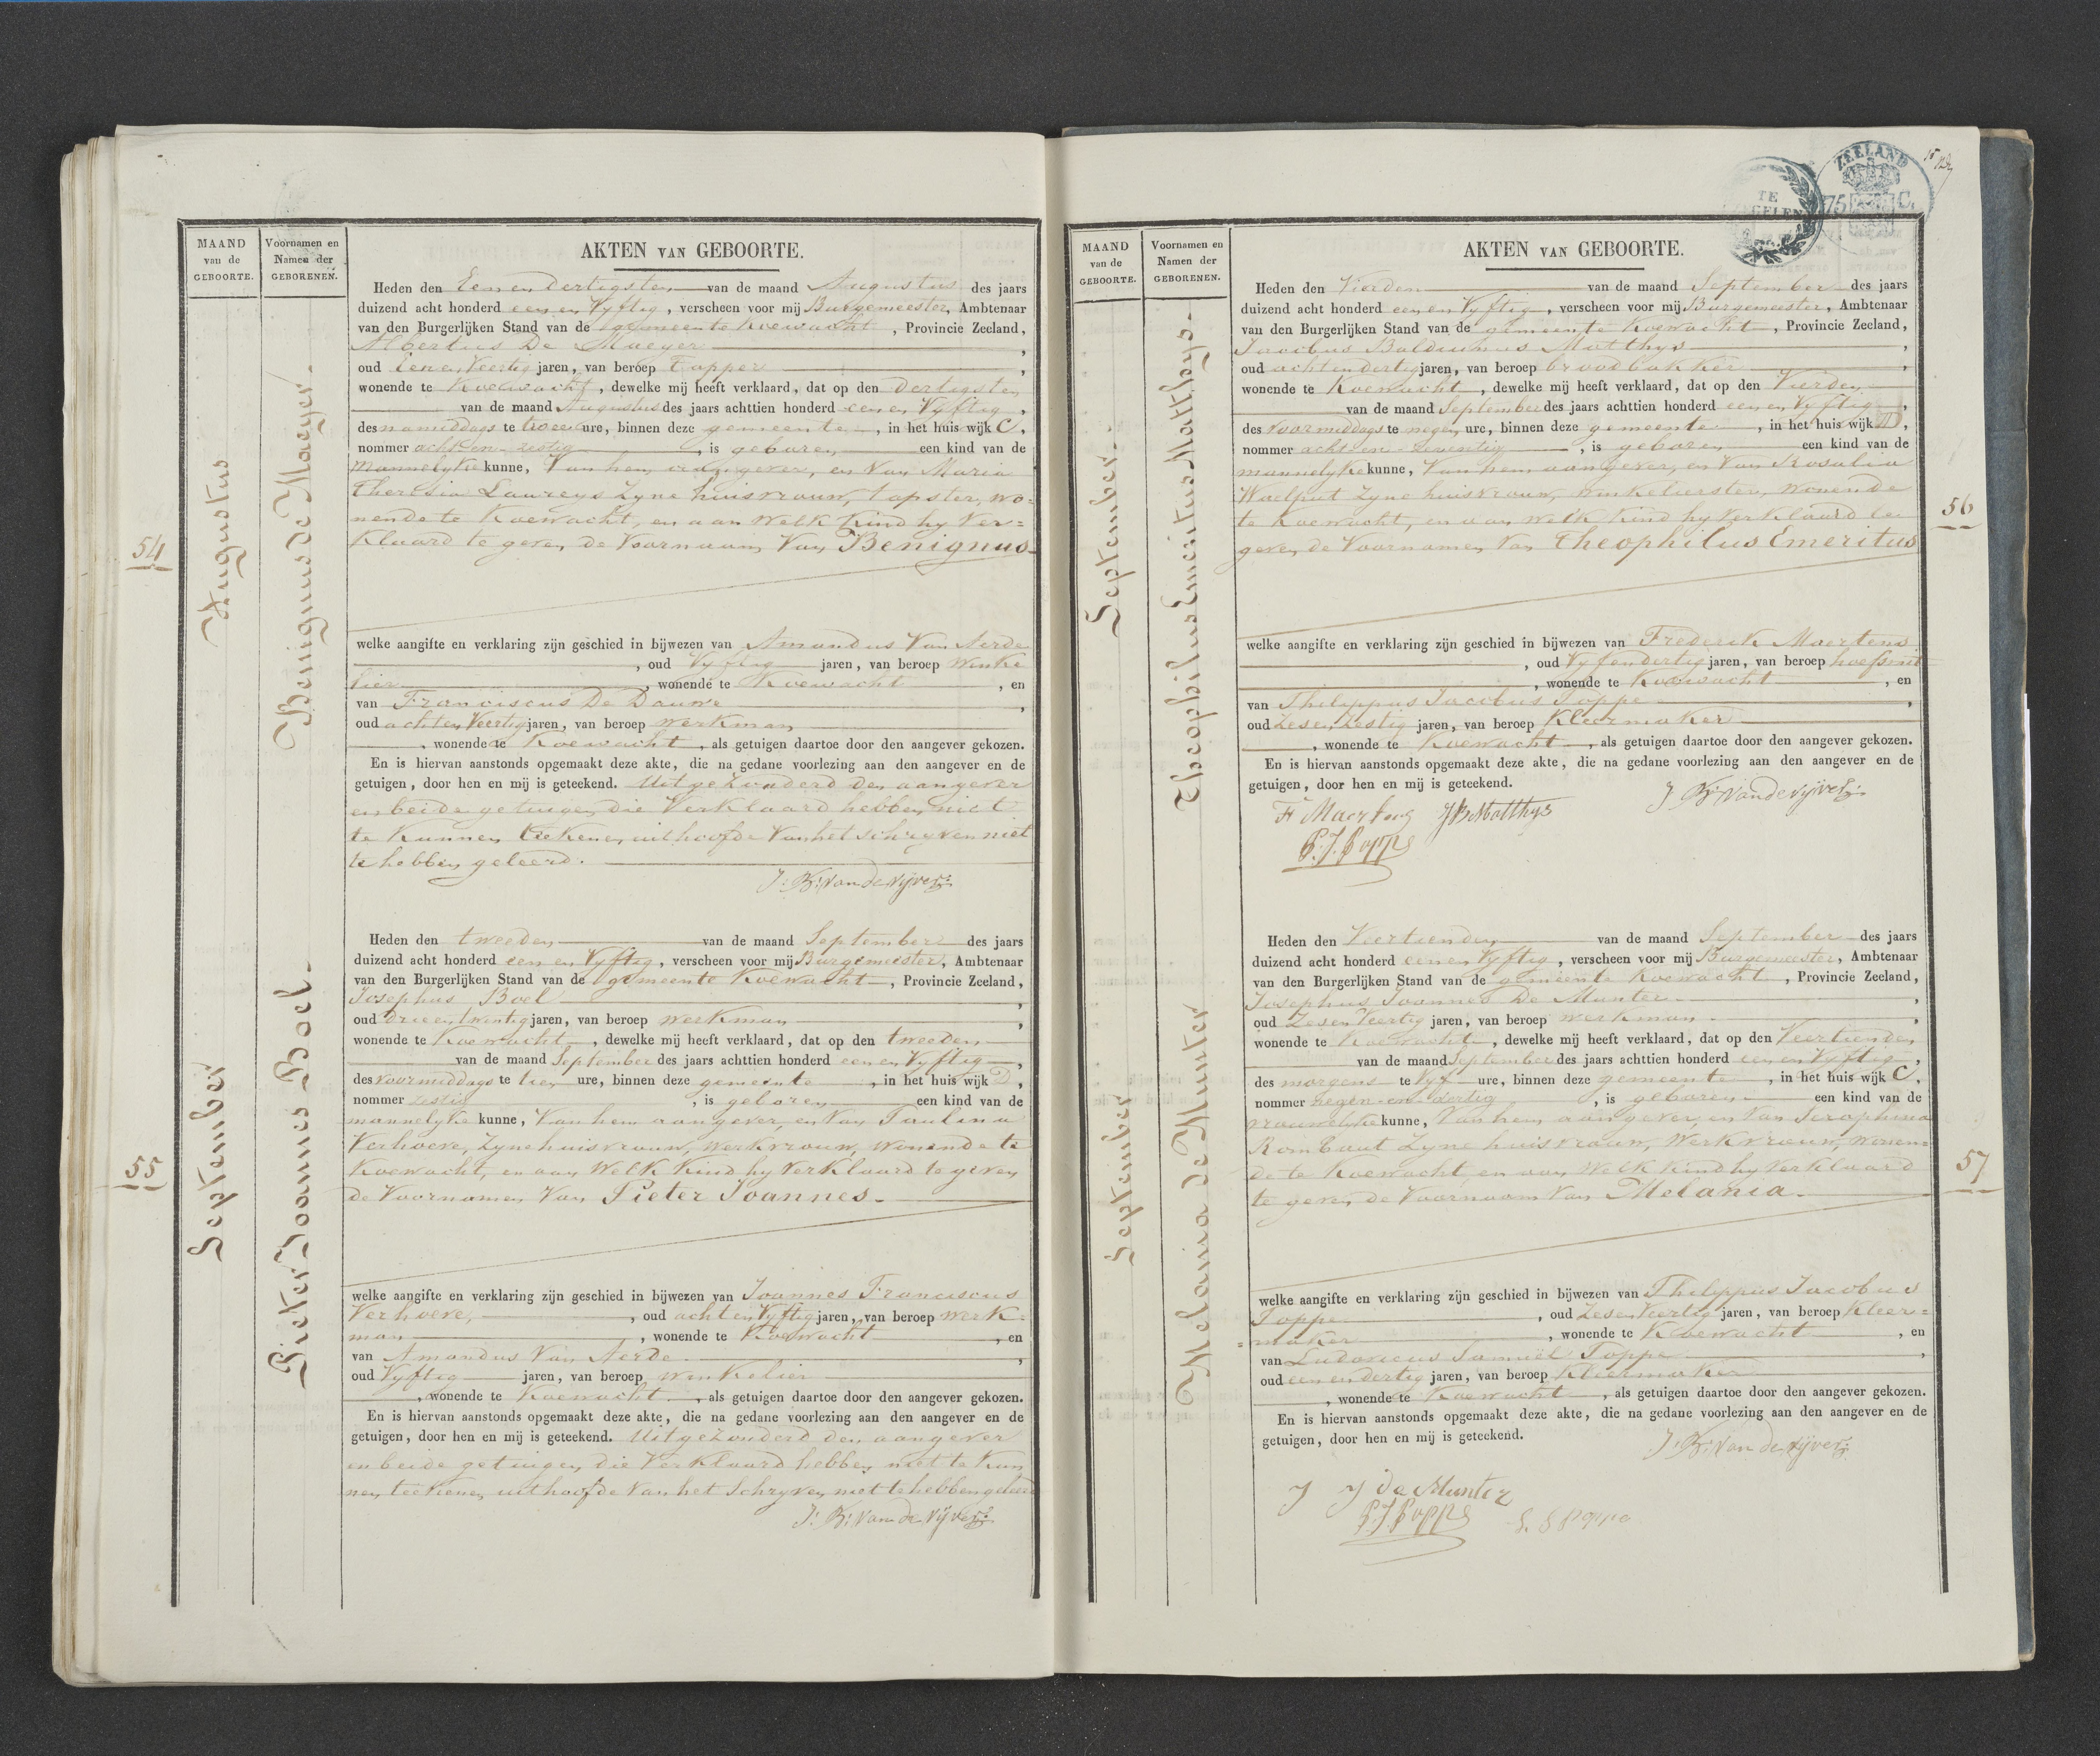 MAAND
van de
GEBOORTE.
Voornamen en
Namen der
GEBORENEN.
AKTEN VAN GEBOORTE.
54
Augustus
Benignus de Maeyer.
Heden den Eenendertigsten van de maand Augustus des jaars
duizend acht honderd een en Vyftig, verscheen voor mij Burgemeester, Ambtenaar
van den Burgerlijken Stand van de gemeente Koewacht, Provincie Zeeland,
Albertus De Maeyer,
oud Eenen Veertig jaren, van beroep Tapper,
wonende te Koewacht, dewelke mij heeft verklaard, dat op den dertigsten
van de maand Augustus des jaars achttien honderd een en Vyftig,
des namiddags te twee ure, binnen deze gemeente, in het huis wijk C,
nommer acht en zestig, is geboren een kind van de
mannelyke kunne, Van hem aangever, en Van Maria
Theresia Laureys Zyne huisvrouw, tapster, wo=
nende te Koewacht, en aan Welk Kind hy Ver=
Klaard te geven de Voornaam Van Benignus
welke aangifte en verklaring zijn geschied in bijwezen van Amandus Van Aerde
, oud Vyftig jaren, van beroep Winke
lier, wonende te Koewacht, en
van Franciscus De Dauwe,
oud achten Veertig jaren, van beroep Werkman
, wonende te Koewacht, als getuigen daartoe door den aangever gekozen.
En is hiervan aanstonds opgemaakt deze akte, die na gedane voorlezing aan den aangever en de
getuigen, door hen en mij is geteekend. Uitgezonderd den aangever
en beide getuigen die Verklaard hebben niet
te Kunnen teekenen uithoofde Van het schryven niet
te hebben geleerd.
J: B: Van de Vijver:
55
September
Pieter Joannes Boel.
Heden den tweeden van de maand September des jaars
duizend acht honderd een en Vyftig, verscheen voor mij Burgemeester, Ambtenaar
van den Burgerlijken Stand van de gemeente Koewacht, Provincie Zeeland,
Josephus Boel,
oud drie en twintig jaren, van beroep Werkman,
wonende te Koewacht, dewelke mij heeft verklaard, dat op den tweeden
van de maand September des jaars achttien honderd een en Vyftig,
des Voormiddags te tien ure, binnen deze gemeente, in het huis wijk D,
nommer zestig, is geboren een kind van de
mannelyke kunne, Van hem aangever, en Van Paulina
Verhoeve, Zyne huisvrouw, Werkvrouw, Wonende te
Koewacht, en aan Welk Kind hy Verklaard te geven
de Voornamen Van Pieter Joannes.
welke aangifte en verklaring zijn geschied in bijwezen van Joannes Franciscus
Verhoeve, oud acht en Vyftig jaren, van beroep Werk=
man, wonende te Koewacht, en
van Amandus Van Aerde.,
oud Vyftig jaren, van beroep Winkelier
, wonende te Koewacht, als getuigen daartoe door den aangever gekozen.
En is hiervan aanstonds opgemaakt deze akte, die na gedane voorlezing aan den aangever en de
getuigen, door hen en mij is geteekend. Uitgezonderd den aangever
en beide getuigen die Verklaard hebben niet te Kun
nen teekenen uithoofde Van het Schryven niet te hebben geleerd
J: B: Van de Vijver:
ZEELAND
75 C.
TE
MAAND
van de
GEBOORTE.
Voornamen en
Namen der
GEBORENEN.
AKTEN VAN GEBOORTE.
56
September.
Theophilus Emeritus Matthys.
Heden den Vierden van de maand September des jaars
duizend acht honderd een en Vyftig, verscheen voor mij Burgemeester, Ambtenaar
van den Burgerlijken Stand van de gemeente Koewacht, Provincie Zeeland,
Jacobus Balduinus Matthys,
oud achtendertig jaren, van beroep broodbakker,
wonende te Koewacht, dewelke mij heeft verklaard, dat op den Vierden
van de maand September des jaars achttien honderd een en Vyftig,
des Voormiddags te negen ure, binnen deze gemeente, in het huis wijk D,
nommer acht en zeventig, is geboren een kind van de
mannelyke kunne, Van hem aangever, en Van Rosalia
Waelput Zyne huisvrouw, Winkelierster, Wonende
te Koewacht, en aan Welk Kind hy Verklaard te
geven de Voornamen Van Theophilus Emeritus
welke aangifte en verklaring zijn geschied in bijwezen van Frederik Maertens
, oud Vyfendertig jaren, van beroep hoefsmit
, wonende te Koewacht, en
van Philippus Jacobus Poppe,
oud Zesen Zestig jaren, van beroep Kleermaker
, wonende te Koewacht, als getuigen daartoe door den aangever gekozen.
En is hiervan aanstonds opgemaakt deze akte, die na gedane voorlezing aan den aangever en de
getuigen, door hen en mij is geteekend.
J. B: Van de Vijver:
Fr Maertens JB Matthys
P. J. Poppe
57
September
Melania de Munter
Heden den Veertienden van de maand September des jaars
duizend acht honderd een en Vyftig, verscheen voor mij Burgemeester, Ambtenaar
van den Burgerlijken Stand van de gemeente Koewacht, Provincie Zeeland,
Josephus Joannes De Munter,
oud Zesen Veertig jaren, van beroep Werkman,
wonende te Koewacht, dewelke mij heeft verklaard, dat op den Veertienden
van de maand September des jaars achttien honderd een en Vyftig,
des morgens te Vyf ure, binnen deze gemeente, in het huis wijk C,
nommer negen en dertig, is geboren een kind van de
vrouwelyke kunne, Van hem aangever, en Van Seraphina
Rombaut Zyne huisvrouw, Werkvrouw, Wonen=
de te Koewacht, en aan Welk Kind hy Verklaard
te geven de Voornaam Van Melania.
welke aangifte en verklaring zijn geschied in bijwezen van Philippus Jacobus
Poppe, oud Zesen Veertig jaren, van beroep Kleer=
=maker, wonende te Koewacht, en
van Ludovicus Samuël Poppe,
oud een en dertig jaren, van beroep Kleermaker
, wonende te Koewacht, als getuigen daartoe door den aangever gekozen.
En is hiervan aanstonds opgemaakt deze akte, die na gedane voorlezing aan den aangever en de
getuigen, door hen en mij is geteekend.
J. B: Van de Vijver:
J J de Munter
P. J. Poppe L. S Poppe